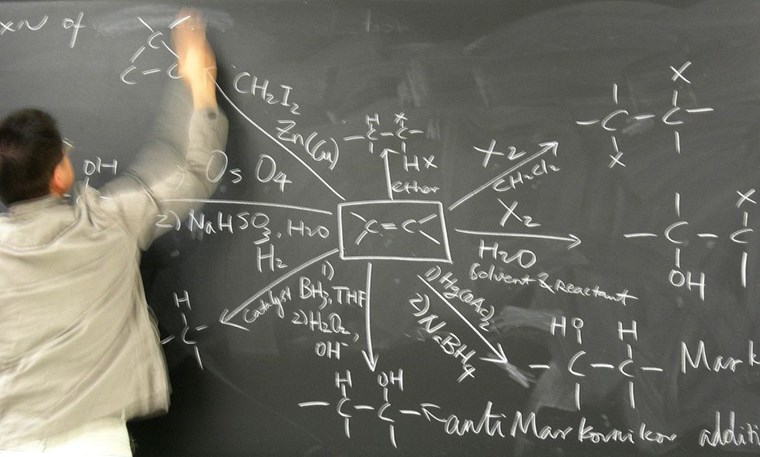 xN of
C
C — C
CH2I2
Zn(Cu)
H X
— C — C —
HX
ether
X2
CH2Cl2
X
— C — C —
X
OH
OsO4
2) NaHSO3, H2O
C = C
X2
H2O
Solvent & reactant
X
— C — C
OH
H2
catalyst
H
C
1) BH3, THF
2) H2O2,
OH-
1) Hg(OAc)2
2) NaBH4
HO H
— C — C — Mark
H OH
— C — C — antiMarkovnikov additi